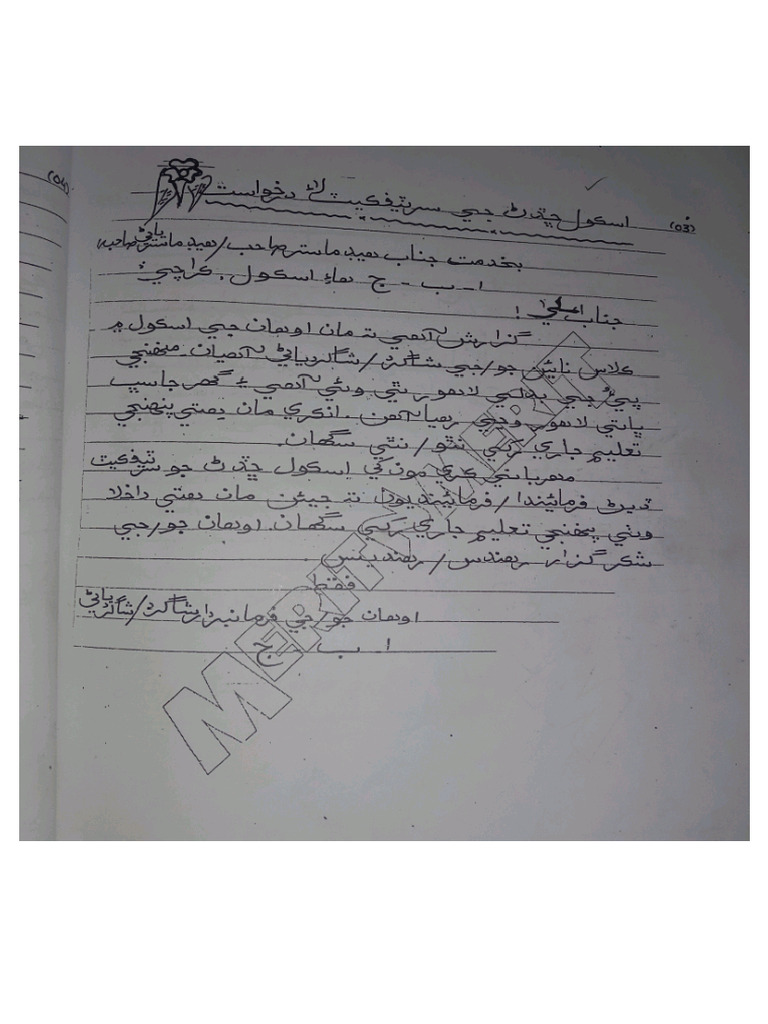 (03) اسڪول ڇڏڻ جي سرٽيفڪيٽ لاءِ درخواست
(04)
بخدمت جناب هيڊ ماستر صاحب/هيڊ ماسترياڻي صاحبه
ا - ب - ج هاءِ اسڪول، ڪراچي
جناب اعليٰ!
گزارش آهي ته مان اوهان جي اسڪول ۾
ڪلاس نائين جو/جي شاگرد/شاگردياڻي آهيان منهنجي
پيءُ جي بدلي لاهور ٿي وئي آهي ۽ گهر جا سڀ
ڀاتي لاهور وڃي رهيا آهن. انڪري مان هتي پنهنجي
تعليم جاري رکي نٿو/نٿي سگهان.
مهرباني ڪري مون کي اسڪول ڇڏڻ جو سرٽيفڪيٽ
ڏيڻ فرمائيندا/فرمائينديون ته جيئن مان هتي داخلا
وٺي پنهنجي تعليم جاري رکي سگهان. اوهان جو/جي
شڪر گزار رهندس/رهنديس.
فقط
اوهان جو/جي فرمانبردار شاگرد/شاگردياڻي
ا - ب - ج